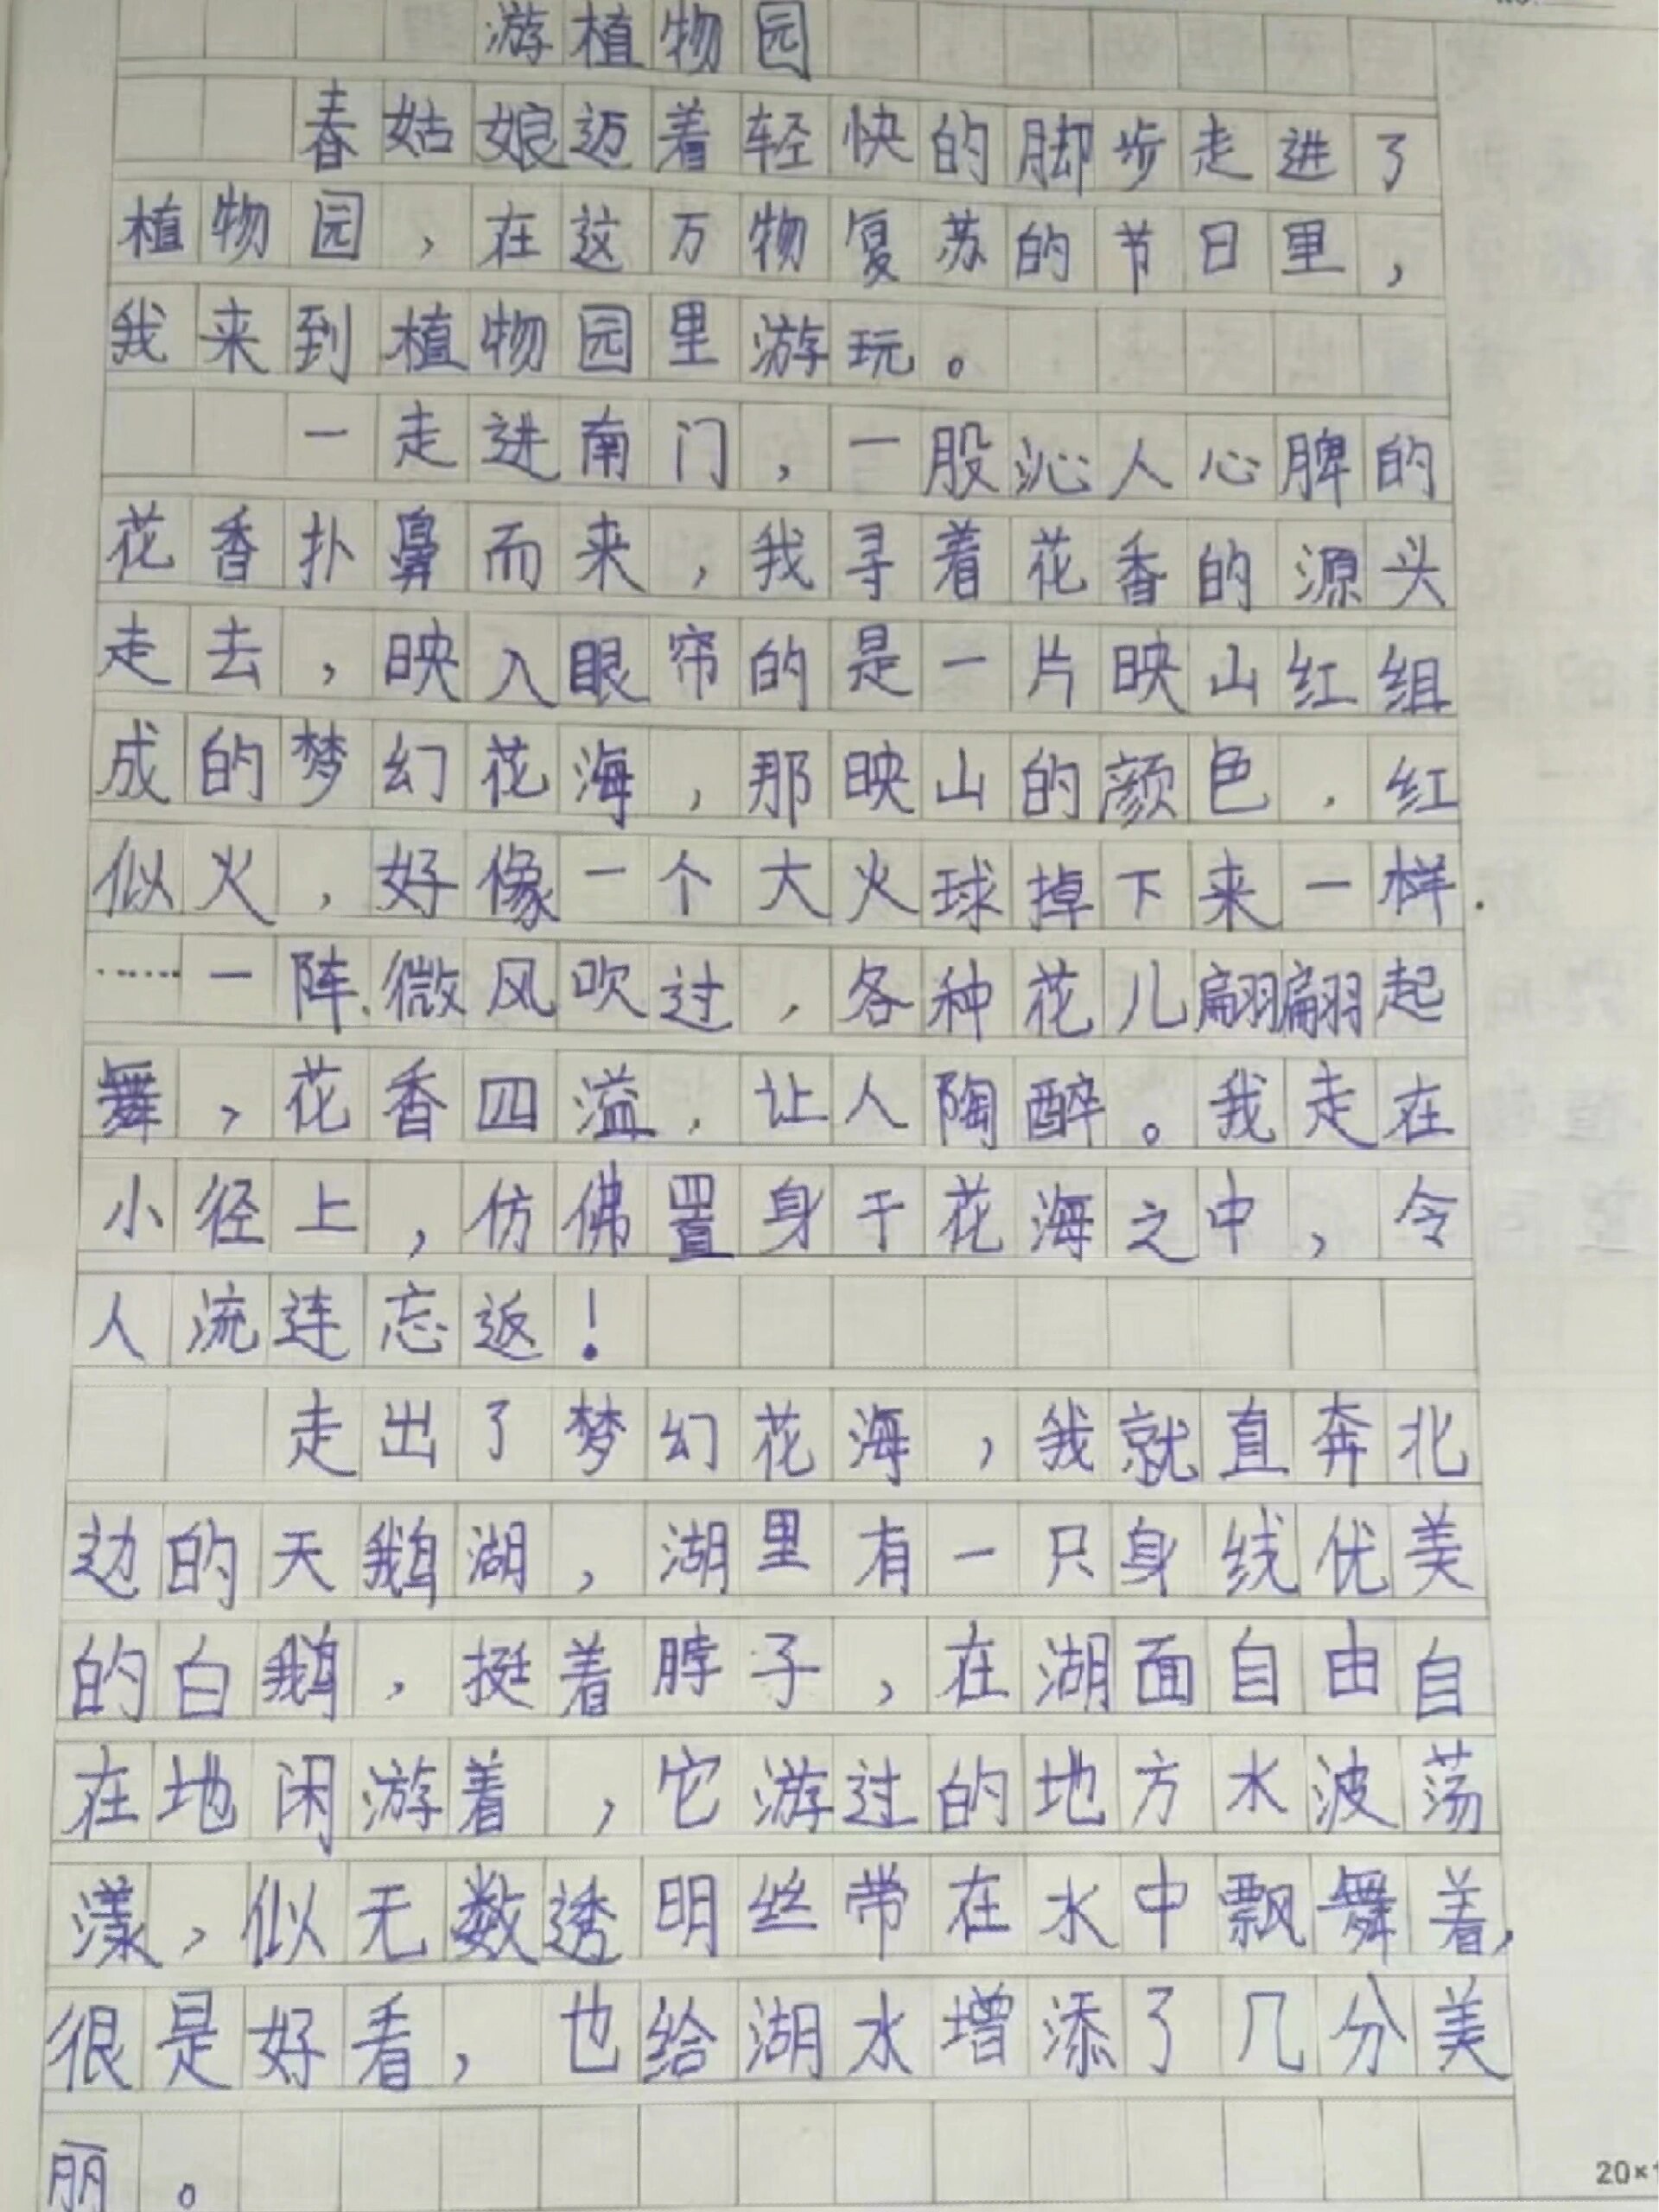 游植物园
春姑娘迈着轻快的脚步走进了
植物园，在这万物复苏的节日里，
我来到植物园里游玩。
一走进南门，一股沁人心脾的
花香扑鼻而来，我寻着花香的源头
走去，映入眼帘的是一片映山红组
成的梦幻花海，那映山的颜色，红
似火，好像一个大火球掉下来一样.
……一阵.微风吹过，各种花儿翩翩起
舞，花香四溢，让人陶醉。我走在
小径上，仿佛置身于花海之中，令
人流连忘返！
走出了梦幻花海，我就直奔北
边的天鹅湖，湖里有一只身线优美
的白鹅，挺着脖子，在湖面自由自
在地闲游着，它游过的地方水波荡
漾，似无数透明丝带在水中飘舞着，
很是好看，也给湖水增添了几分美
丽。
20×